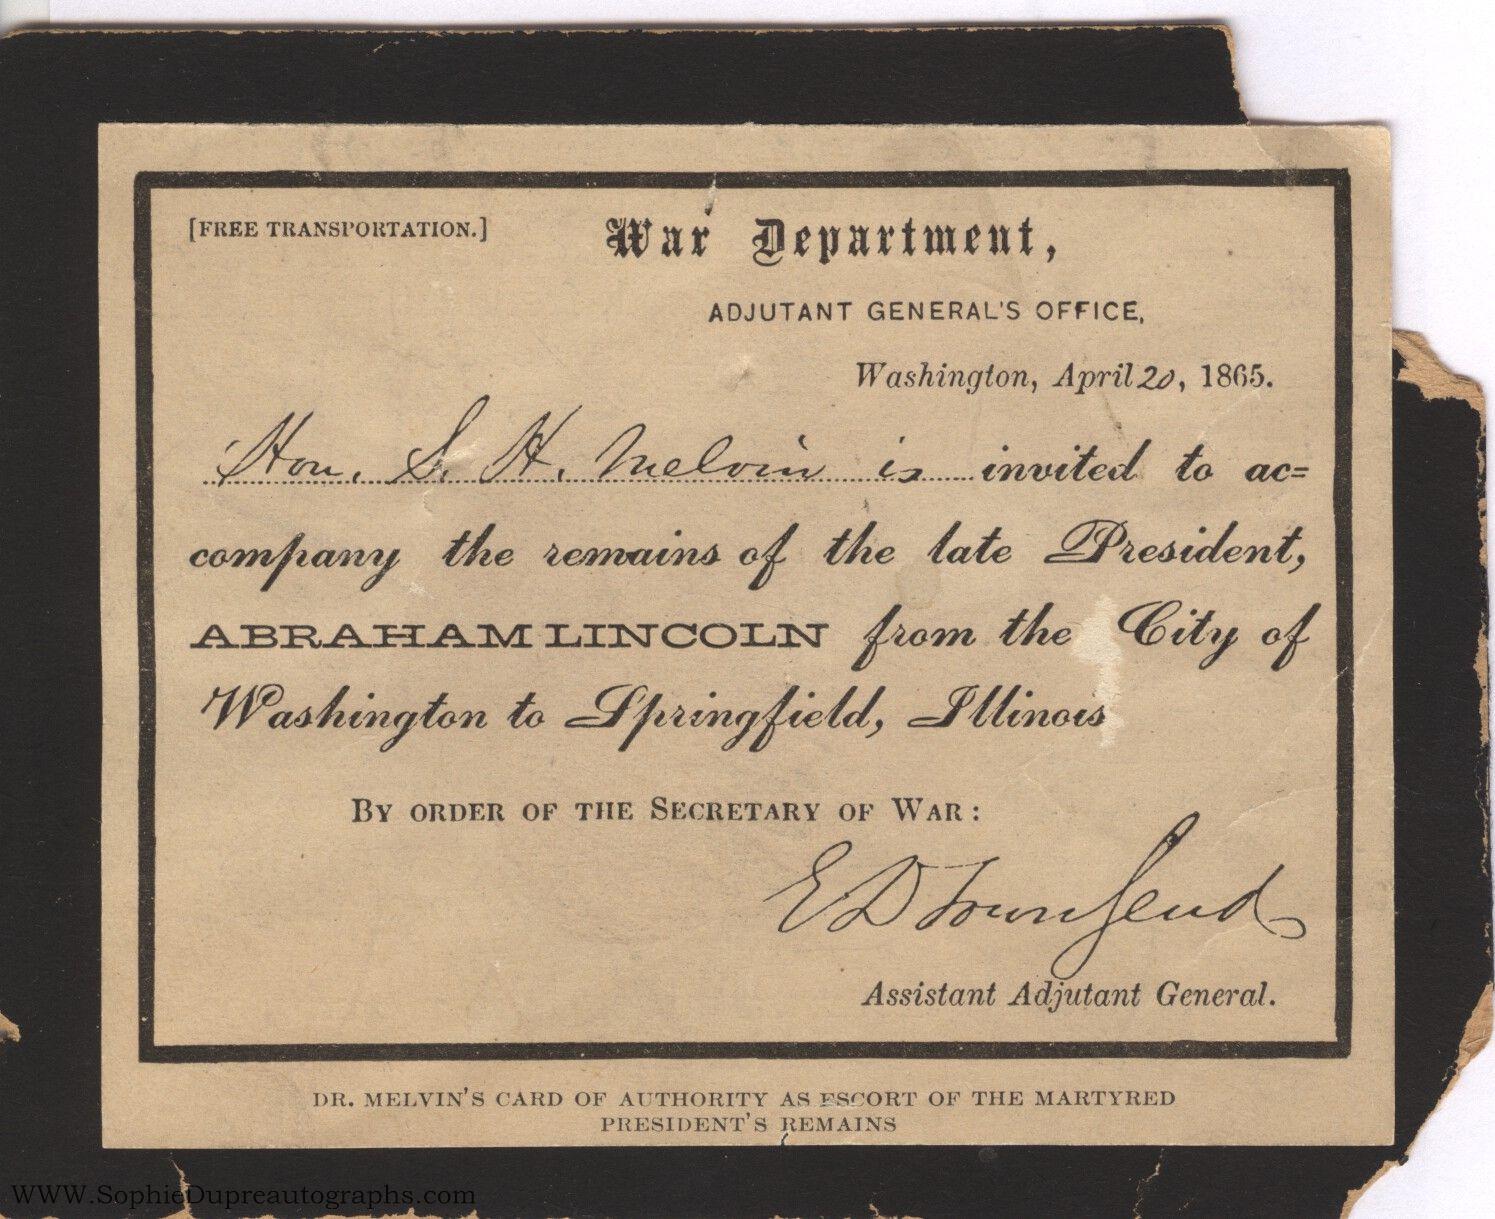 [FREE TRANSPORTATION.]
War Department,
ADJUTANT GENERAL'S OFFICE,
Washington, April 20, 1865.
Hon. S. H. Melvin is invited to ac=
company the remains of the late President,
ABRAHAM LINCOLN from the City of
Washington to Springfield, Illinois
BY ORDER OF THE SECRETARY OF WAR:
E D Townsend
Assistant Adjutant General.
DR. MELVIN'S CARD OF AUTHORITY AS ESCORT OF THE MARTYRED
PRESIDENT'S REMAINS
WWW.SophieDupreautographs.com